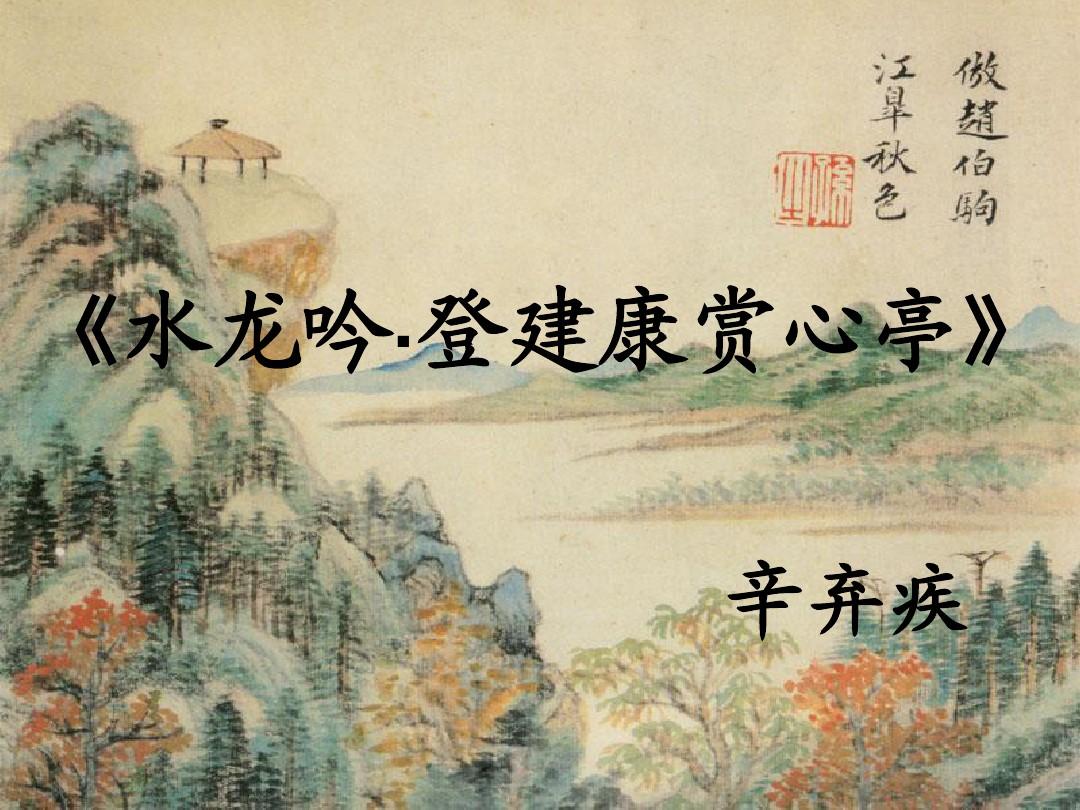 倣趙伯駒
江皐秋色
《水龙吟·登建康赏心亭》
辛弃疾